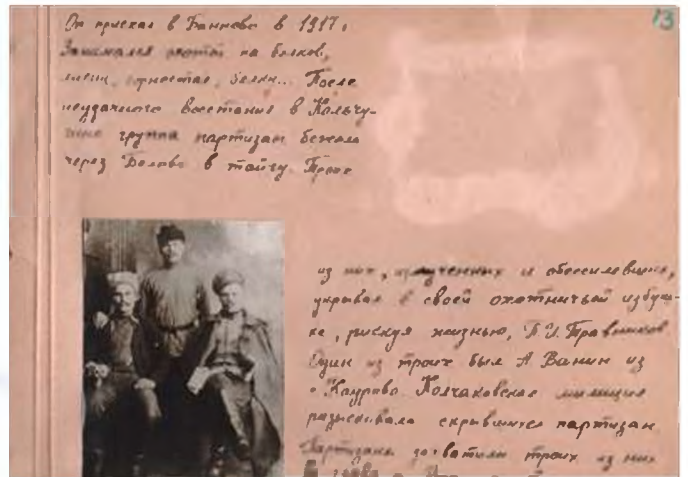 13
Он приехал в Банново в 1917.
Занимался охотой на волков,
лисиц, горностая, белки... После
неудачного восстания в Кольчу-
гино группа партизан бежала
через Белово в тайгу. Трое
из них, измученных и обессилевших,
укрывал в своей охотничьей избуш-
ке, рискуя жизнью, П.И.
Один из троих был А. Ванин из
Колчаковская милиция
разыскивала скрывшихся партизан.
троих из них